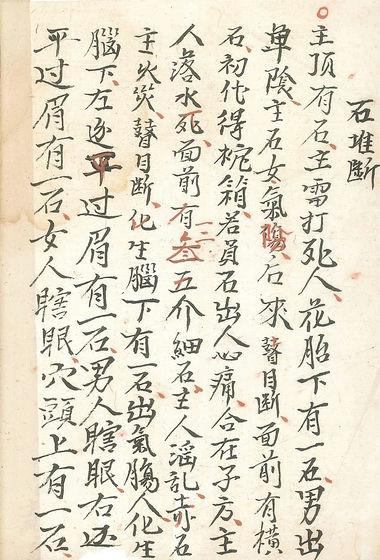 石堆斷
主顶有石主雷打死人花胎下有一石男出
单陰主石女氣膓后來瞽目断面前有橫
石初代得枪箱若員石出人心痛合在子方主
人落水死面前有叁五介細石主人淫乱赤石
主火災瞽目断化生腦下有一石出氣膓人化生
腦下左边平过眉有一石男人瞎眼右边
平过眉有一石女人瞎眼穴頭上有一石